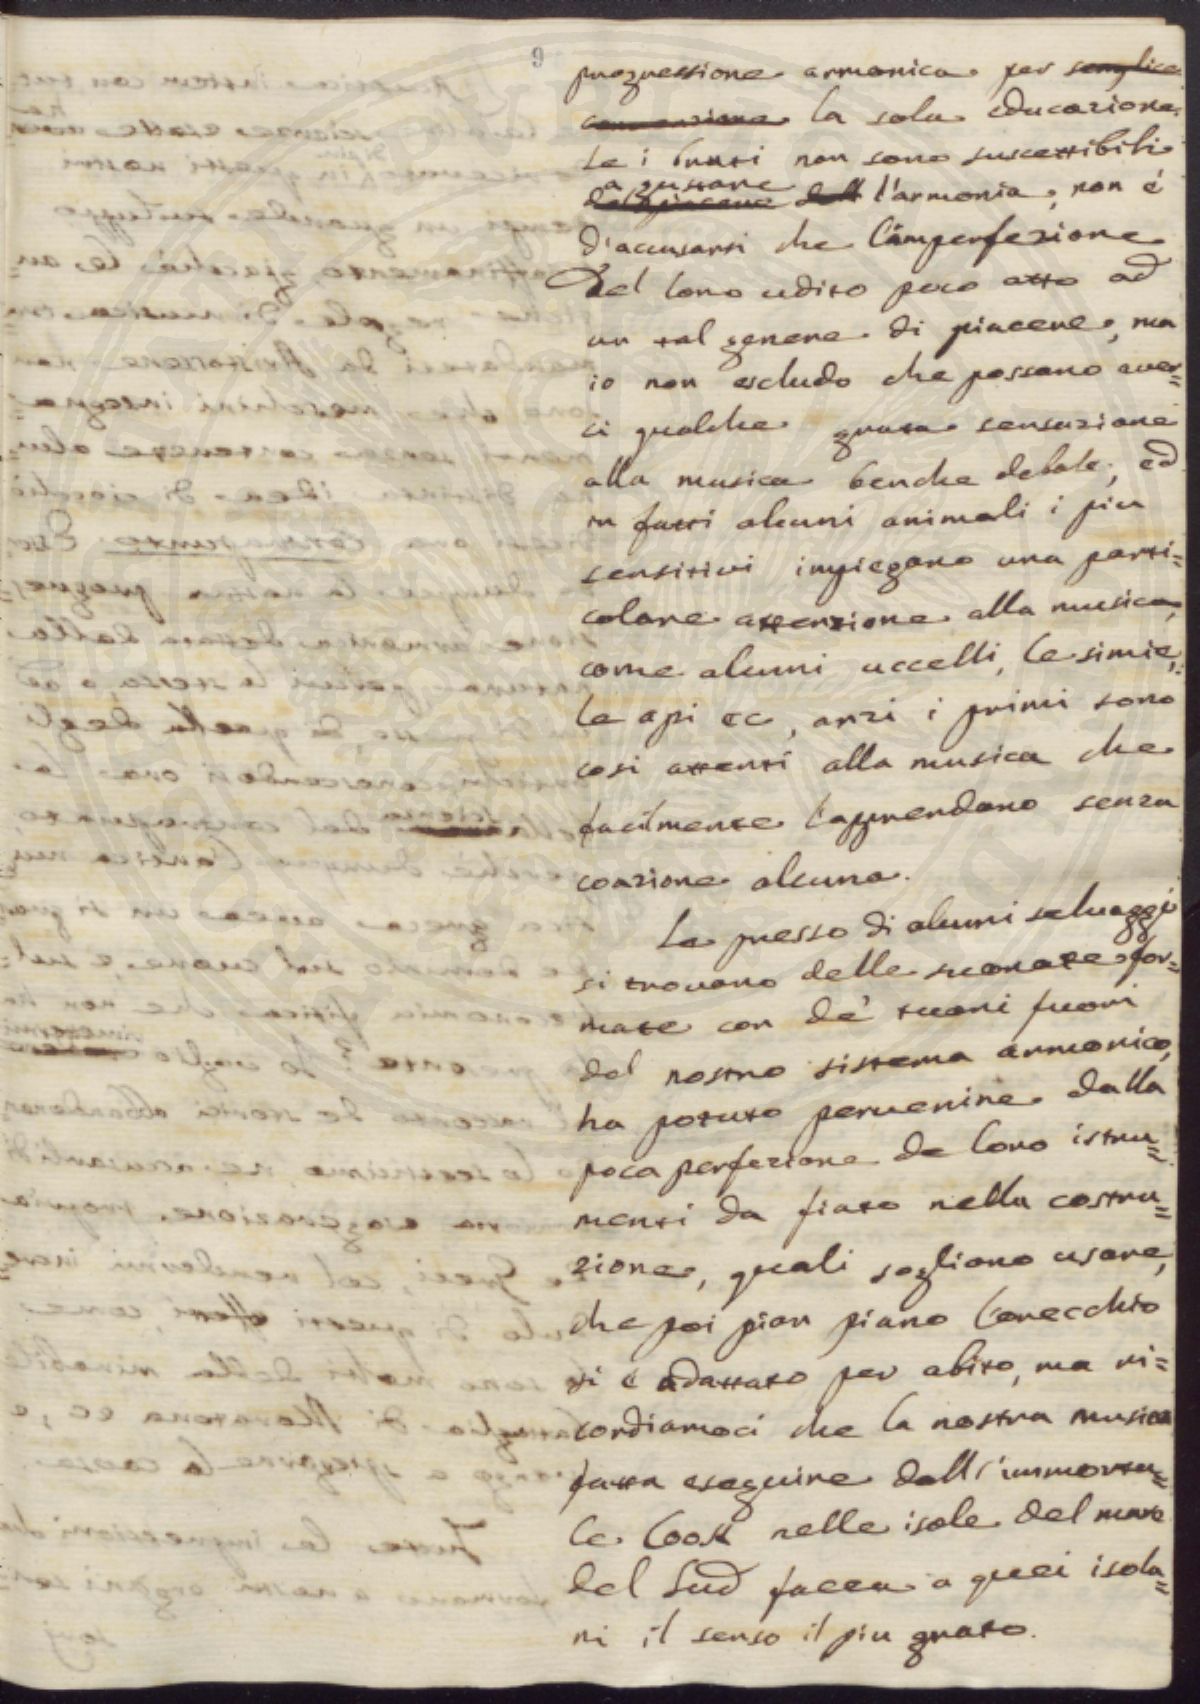 9
progressione armonica per semplice
convenzione la sola educazione.
Se i bruti non sono suscettibili
a gustare
del piacere dell l'armonia, non è
d'accusarsi che l'imperfezione
del loro udito poco atto ad
un tal genere di piacere, ma
io non escludo che possano aver=
ci qualche grata sensazione
alla musica benche debole, ed
in fatti alcuni animali i piu
sensitivi impiegano una parti=
colare attenzione alla musica,
come alcuni uccelli, le simie,
le api ec, anzi i primi sono
cosi attenti alla musica che
facilmente l'apprendono senza
coazione alcuna.
Se presso di alcuni selvaggi
si trovano delle suonate for=
mate con de' tuoni fuori
dal nostro sistema armonico,
ha potuto pervenire dalla
poca perfezione de loro istru=
menti da fiato nella costru=
zione, quali sogliono usare,
che poi pian piano l'orecchio
si è adattato per abito, ma ri=
cordiamoci che la nostra musica
fatta eseguire dall'immorta=
le Cook nelle isole del mare
del Sud facea a quei isola=
ni il senso il piu grato.